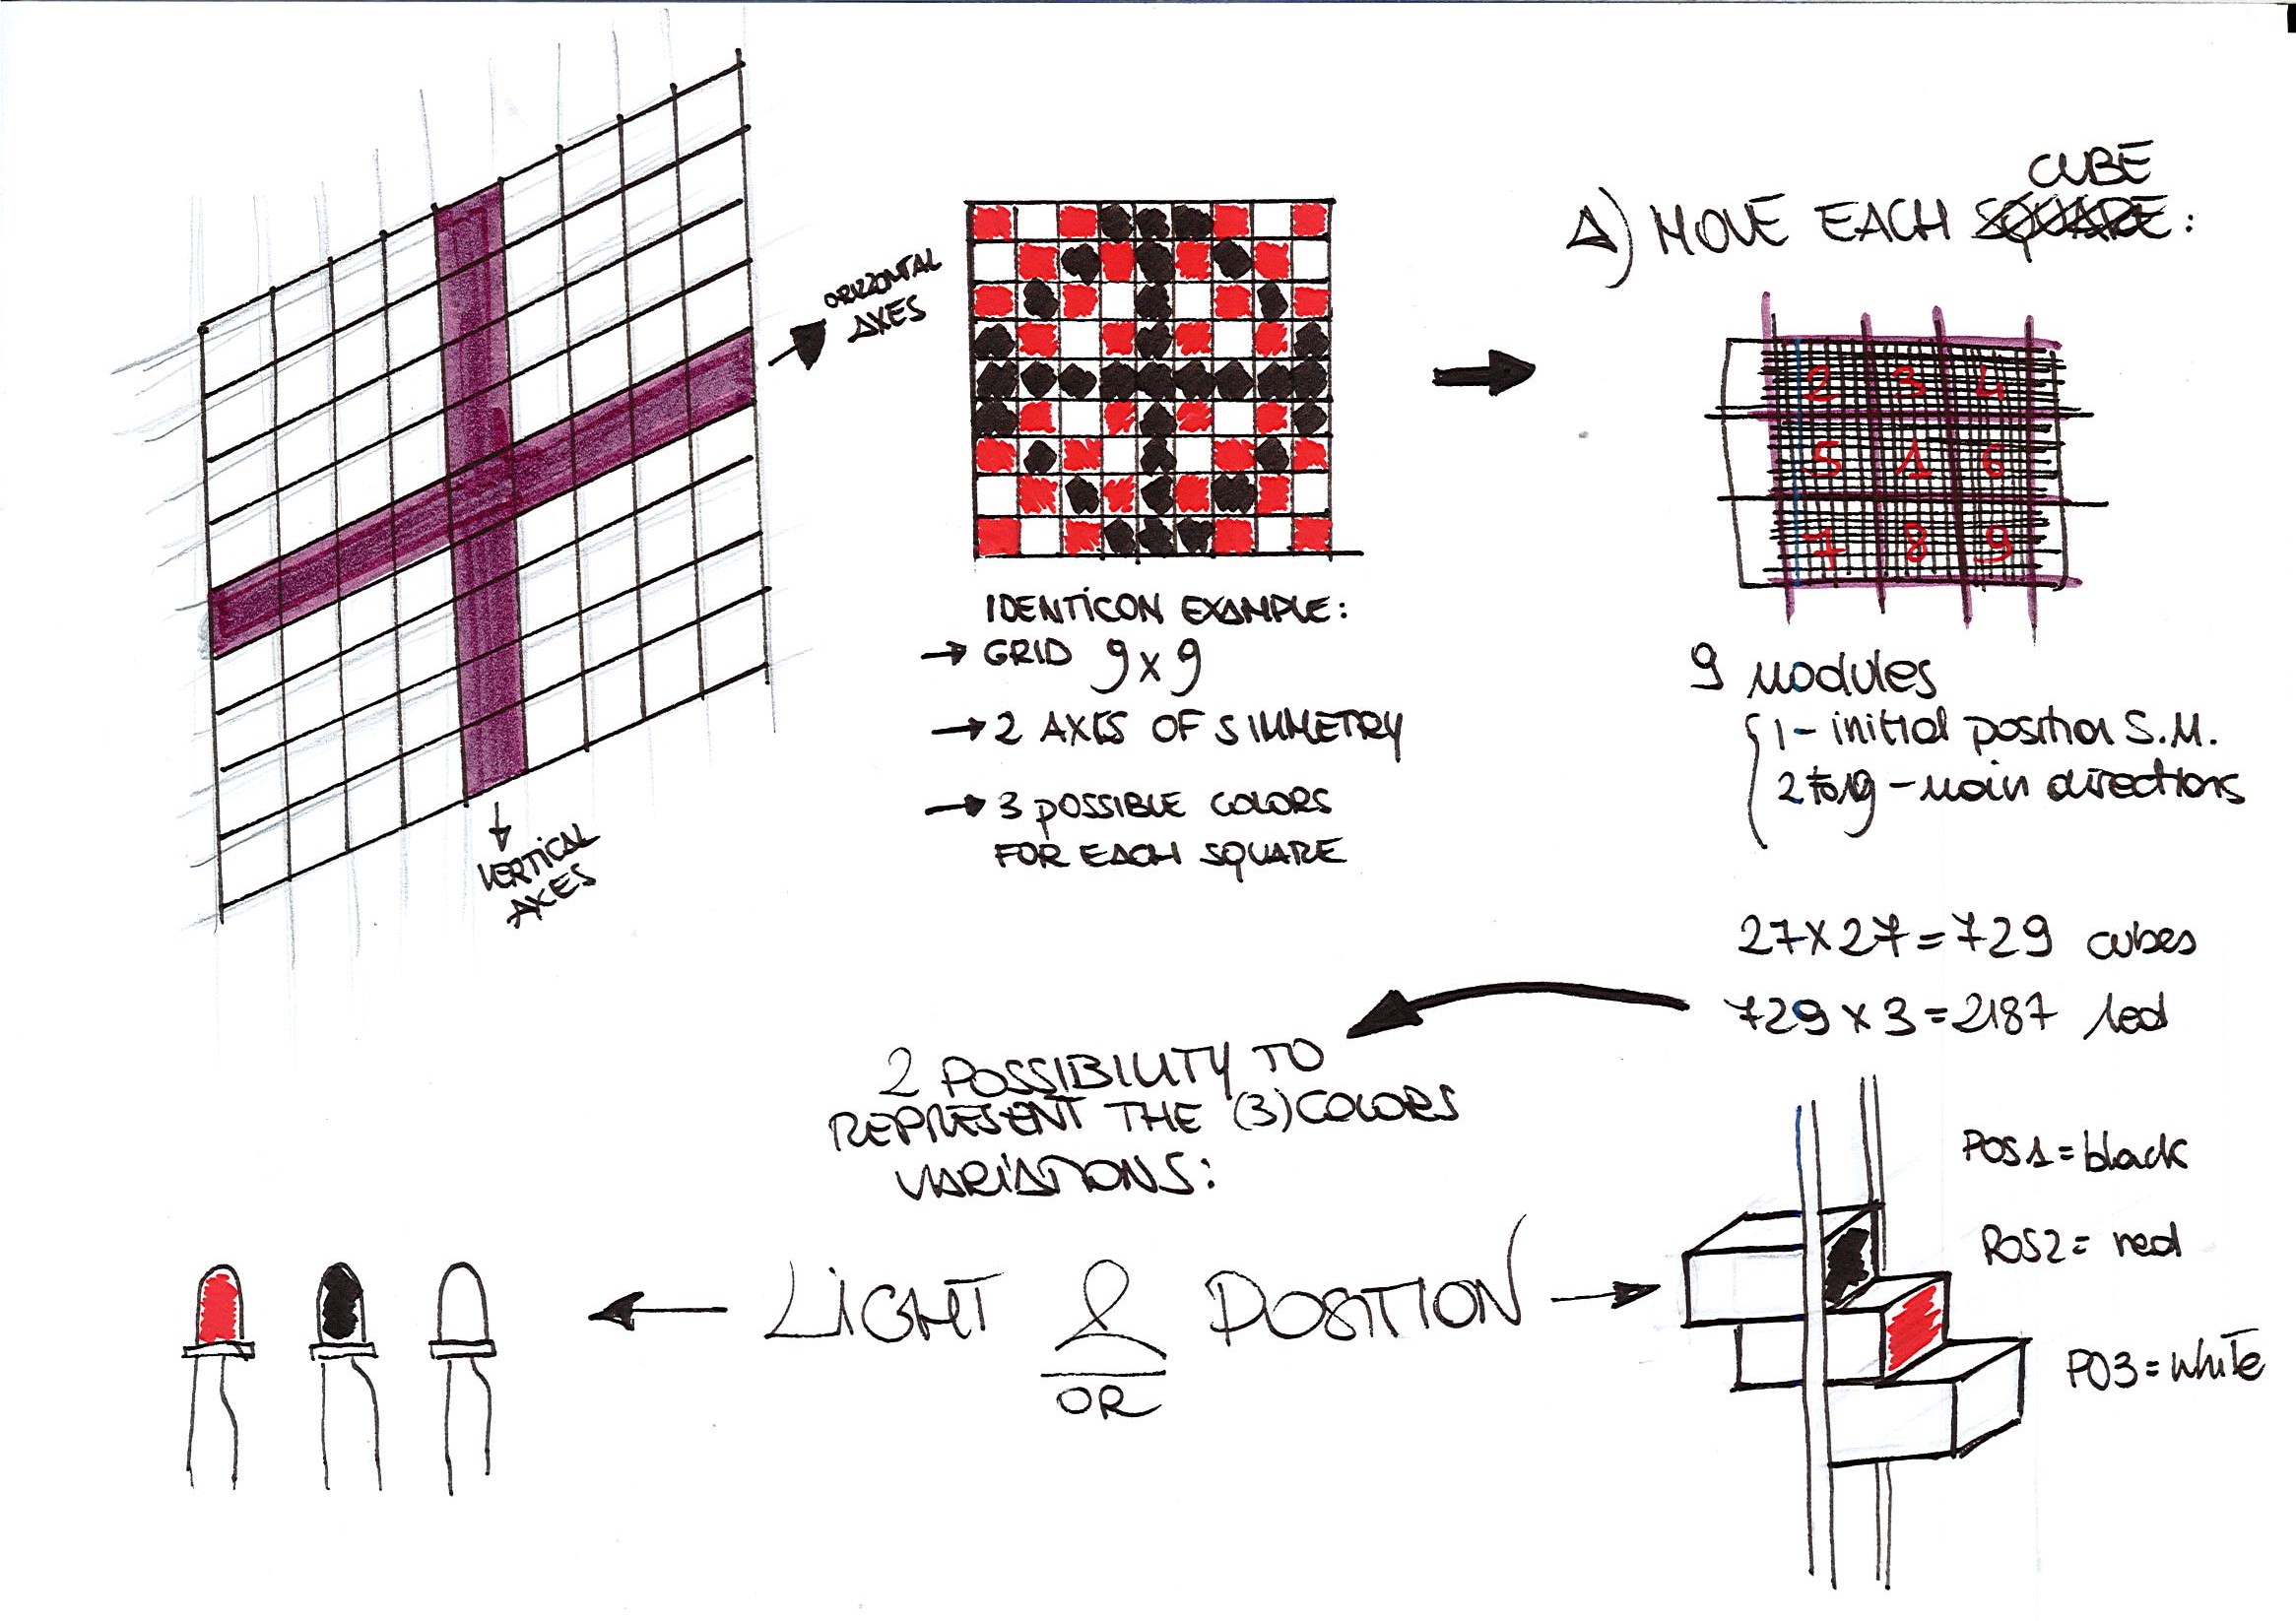 ORIZZONTAL
AXES
VERTICAL
AXES
IDENTICON EXAMPLE:
→ GRID 9x9
→ 2 AXIS OF SIMMETRY
→ 3 POSSIBLE COLORS
FOR EACH SQUARE
CUBE
A) MOVE EACH SQUARE:
2 3 4
5 1 6
7 8 9
9 modules
1 - initial position S.M.
2 to 9 - main directions
27x27=729 cubes
729x3=2187 led
2 POSSIBILITY TO
REPRESENT THE (3) COLORS
VARIATIONS:
LIGHT & POSITION
OR
POS1=black
POS2= red
PO3=white